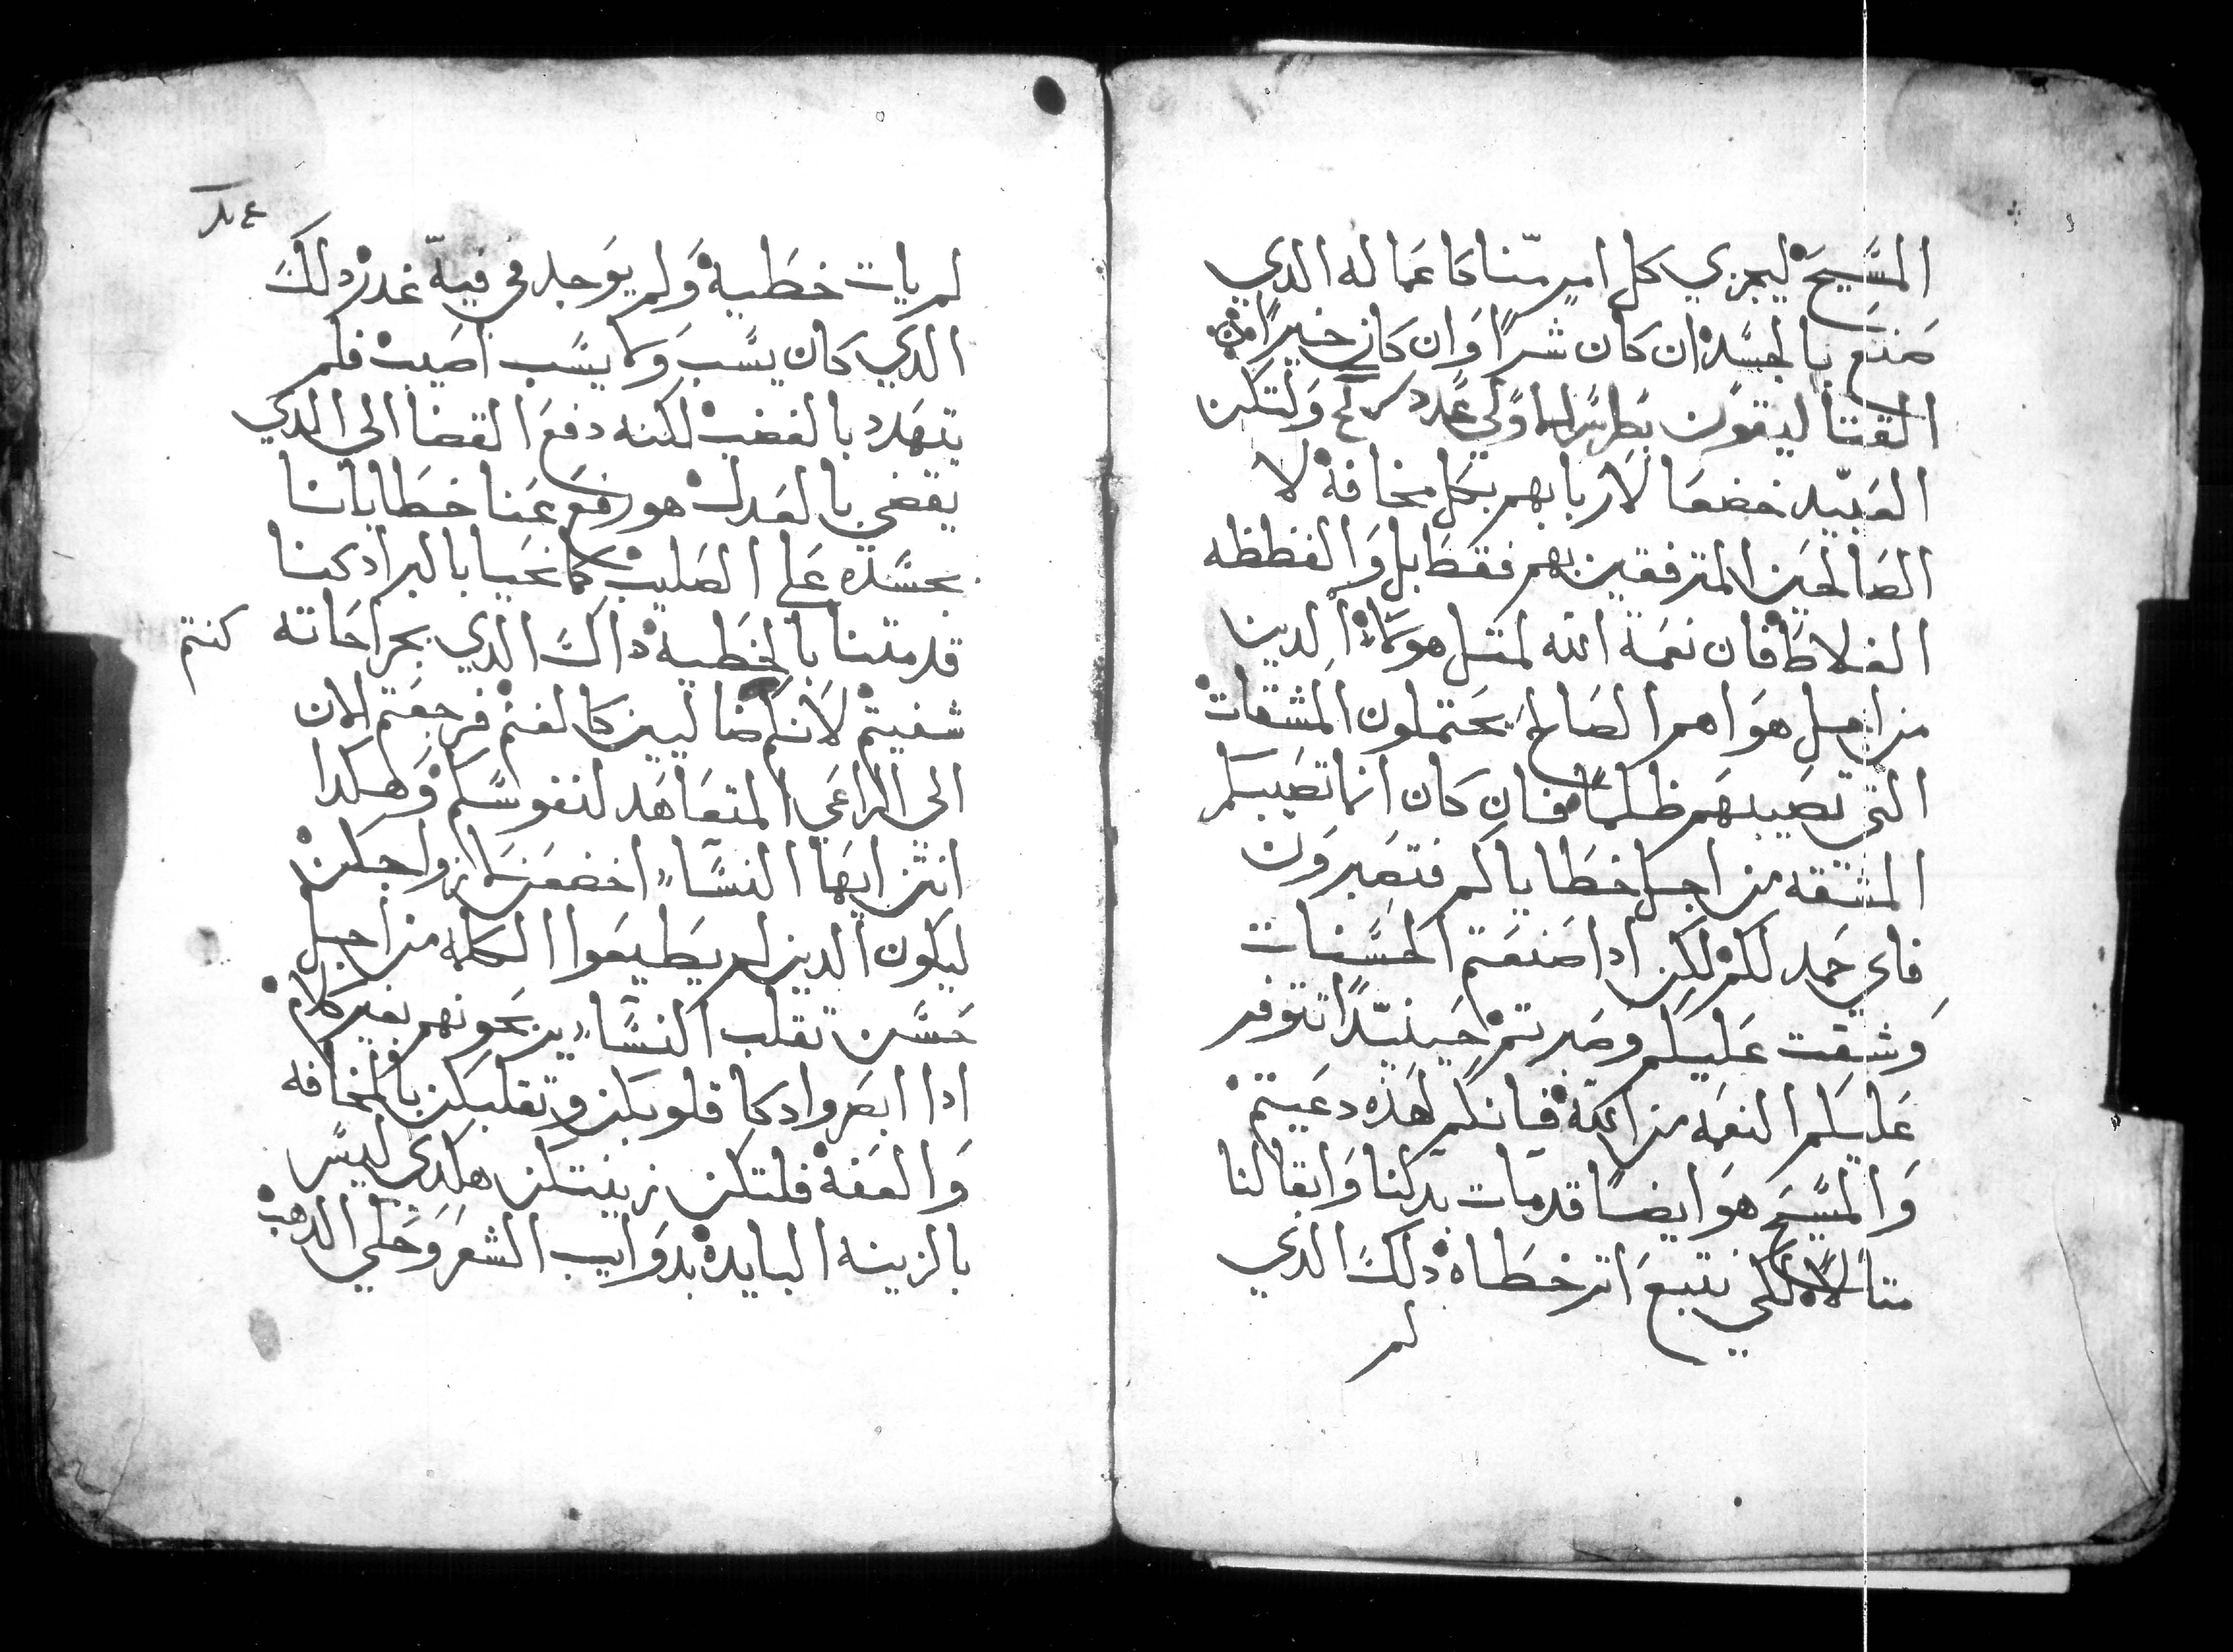 المسيح ليجزي كل امرٍ منّا كاعماله الدي
صنع بالجسد ان كان شراً وان كان خيراً من
القتاليقون بطرس الاولي عدد وَلتكن
العبيد خضعا لاربابهم بكل مخافة لا
الصالحين المترفقين بهم فقط بل وَالفظظه
الغلاظ فان نعمة الله لمتل هولاء الدين
من اجل هواهم الصالح يحتملون المشقات
التي تصيبهم ظلماً فان كان انما تصيبكم
المشقه من اجل خطاياكم فتصبرون
فاي حمد لكم لكن ادا صنعتم الحسنات
وَشقت عليكم وصبرتم حينيدًا تتوفر
عليكم النعمه من الله فانكم لهده دعيتم
وَالمسيح هوَ ايضاً قد مات بدلنا وَابقا لنا
متالاً لكي نتبع اتر خطاه دلك الدي
لم
لم يات خطية وَلم يوجد في فيهّ غدر دلك
الدي كان يسب وَلا يسب اصيب فلم
يتهدد بالغضب لكنه دفع القضا الى الدي
يقضي بالعدل هو رفع عنا خطايانا
بجسده على الصليب كما نحيا بالبر اد كنا
قد متنا بالخطية داك الدي بجراحاته
كنتم
شفيتم لانكم ضاليين كالغنم فرجعتم الان
الى الراعي المتعاهد لنفوسكم وَهكدا
انتن ايها النساء اخضعن لازواجكن
ليكون الدين لم يطيعوا الكلمه من اجل
حسن تقلب النساء يربحونهم بغير كلام
ادا ابصروا دكا قلوبكن وتقلبكن بالمخافه
وَالعفة فلتكن زينتكن هكدي ليس
بالزينه البايدة بدوايب الشعر وَحلي الدهب